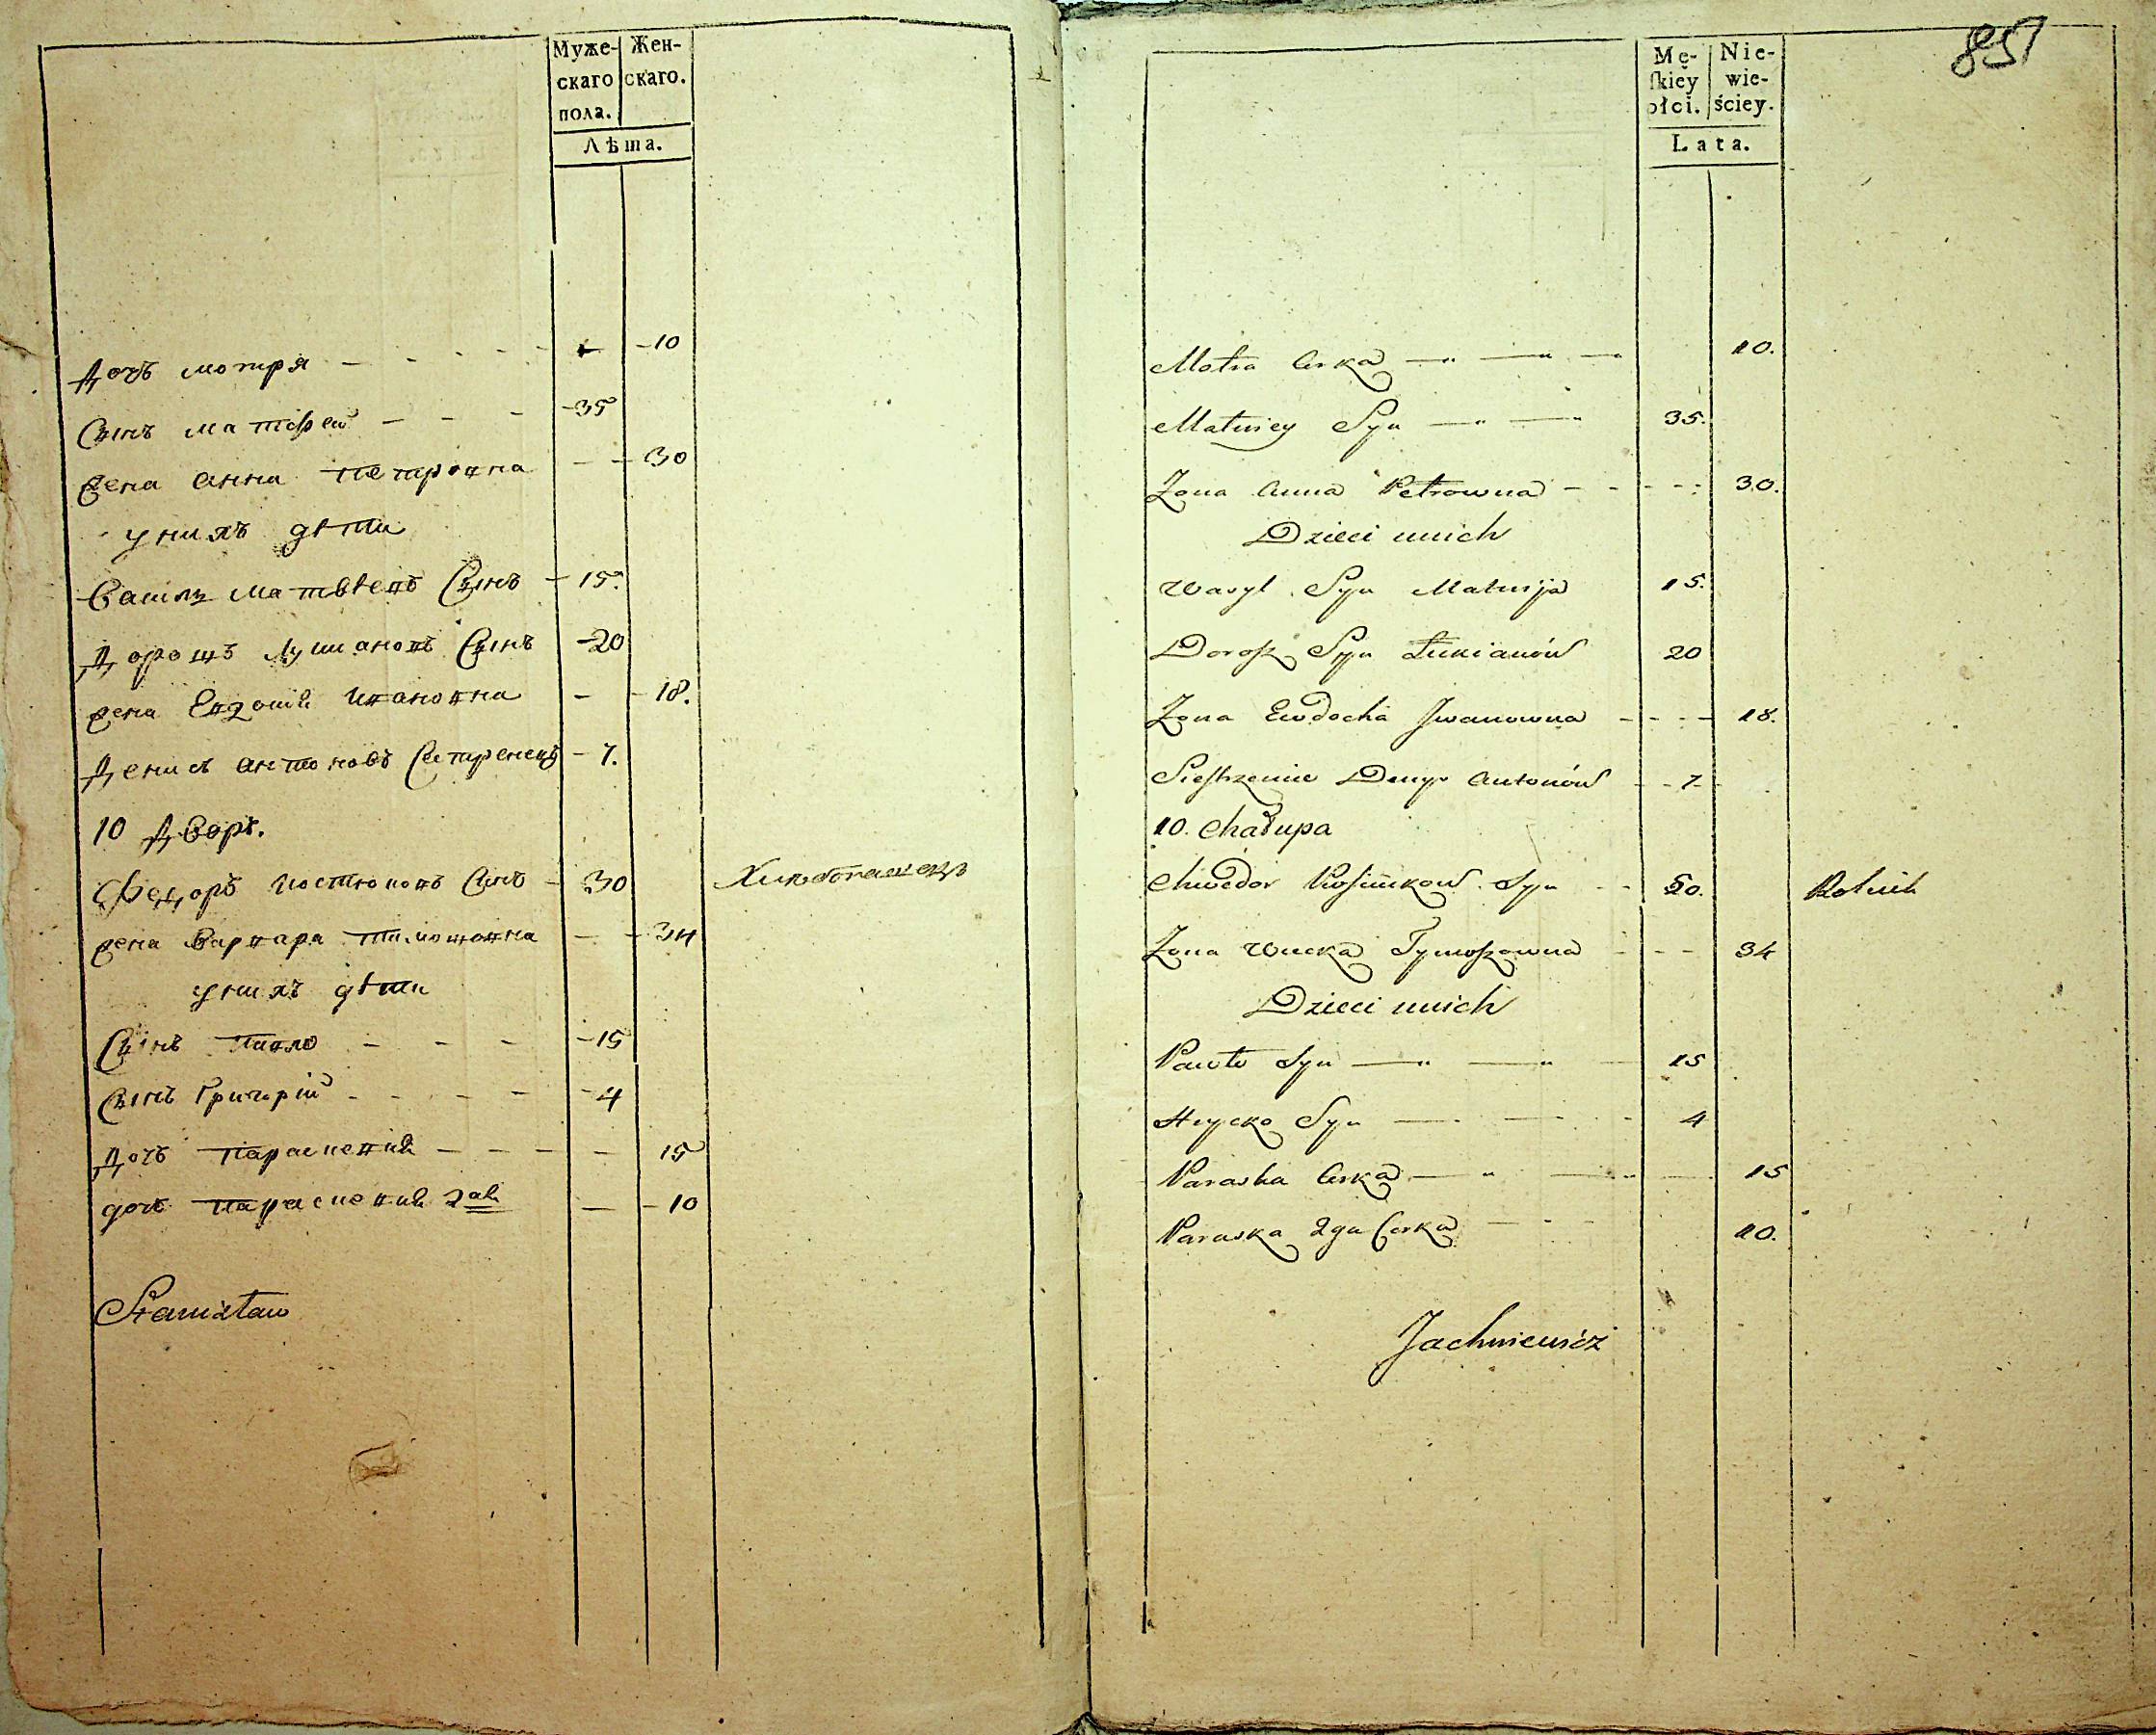 Муже-
скаго
пола.
Жен-
скаго.
Лѣта.
Дочъ мотря - - - - 10
Сынъ матфей - - - 35
жена анна петровна - - 30
унихъ дѣти
Василь матвѣевъ Сынъ - 15.
Дорошъ Лукяновъ Сынъ - 20
жена Евдокия Ивановна - - 18.
Денисъ антоновъ Сестренецъ - 7.
10 Дворъ.
Федоръ Костюковъ Сынъ - 30 Хлебопашецъ
жена Варвара тимошовна - - 34
унихъ дѣти
Сынъ павло - - - - 15
Сынъ Григорій - - - - 4
Дочъ парасковия - - - - 15
дочъ парасковия 2ая - - 10
Stanisław
851
Mę-
skiey
płci.
Nie-
wie-
ściey.
Lata.
Motra Corka — — — 10.
Matwiey Syn — — 35.
Zona Anna Petrowna - - - - 30.
Dzieci unich
Wasyl Syn Matwija 15.
Dorosz Syn Łukianów 20
Zona Ewdocha Jwanowna - - - - 18.
Siestrzeniec Denys Antonów - - 7 -
10. Chałupa
Chwedor Syn - - 50. Rolnik
Zona Tymoszowna - - - 34
Dzieci unich
Pawło Syn — — 15
Hrycko Syn — — - 4
Paraska Corka — — — 15
Paraska 2ga Corka - - - 10.
Jachniewicz